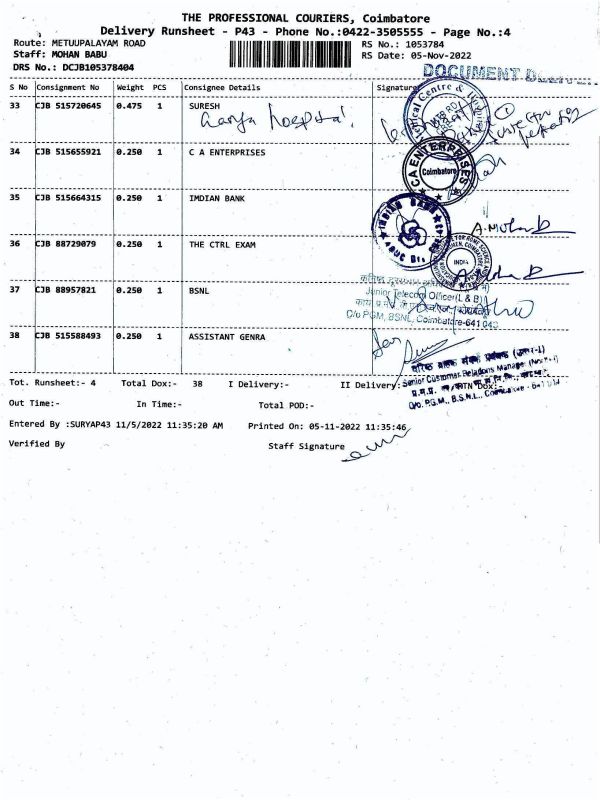 THE PROFESSIONAL COURIERS, Coimbatore
Delivery Runsheet - P43 - Phone No.:0422-3505555 - Page No.:4
Route: METUUPALAYAM ROAD
RS No.: 1053784
Staff: MOHAN BABU
RS Date: 05-Nov-2022
DRS No.: DCJB105378404
DOCUMENT
S No Consignment No Weight PCS Consignee Details Signature
33 CJB 515720645 0.475 1 SURESH
hospital
34 CJB 515655921 0.250 1 C A ENTERPRISES
CA ENTERPRISES
Coimbatore
35 CJB 515664315 0.250 1 IMDIAN BANK
INDIAN BANK
36 CJB 88729079 0.250 1 THE CTRL EXAM
INDIA
37 CJB 88957821 0.250 1 BSNL
Junior Telecom Officer (L & B)
O/o PGM, BSNL, Coimbatore-641 043.
38 CJB 515588493 0.250 1 ASSISTANT GENRA
Tot. Runsheet:- 4 Total Dox:- 38 I Delivery:- II Delivery:- NTN Dox:-
Senior Customer Relations Manager
O/o. P.G.M., B.S.N.L., Coimbatore
Out Time:- In Time:- Total POD:-
Entered By :SURYAP43 11/5/2022 11:35:20 AM Printed On: 05-11-2022 11:35:46
Verified By Staff Signature